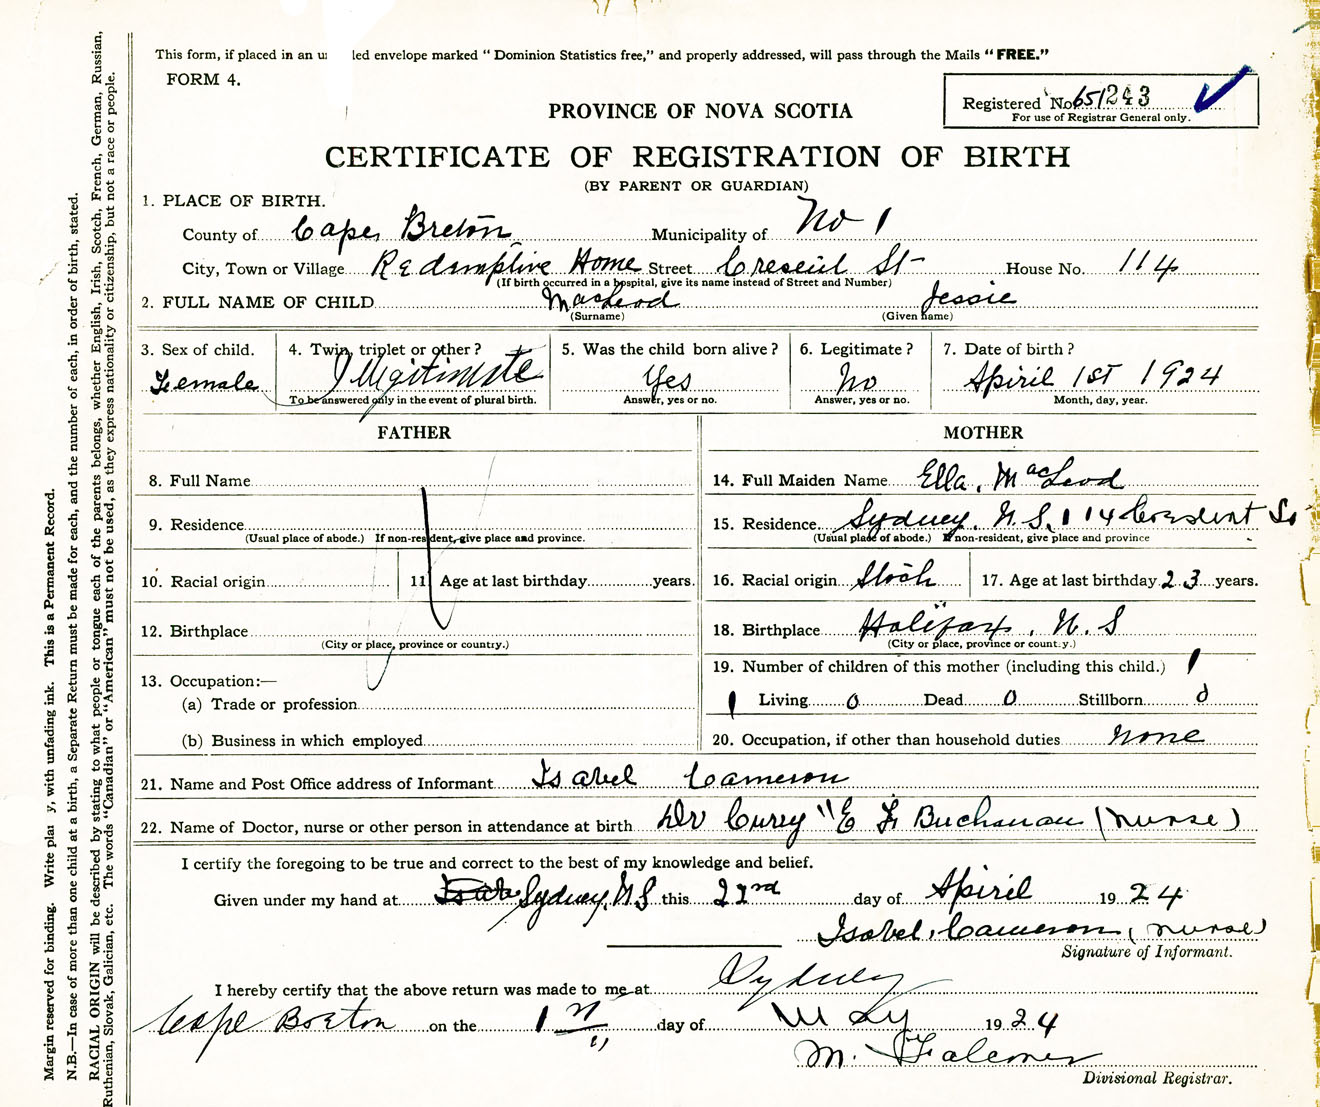 This form, if placed in an un led envelope marked “ Dominion Statistics free,” and properly addressed, will pass through the Mails “FREE.”
FORM 4.
Registered No. 651243
For use of Registrar General only.
PROVINCE OF NOVA SCOTIA
CERTIFICATE OF REGISTRATION OF BIRTH
(BY PARENT OR GUARDIAN)
1. PLACE OF BIRTH.
County of Cape Breton Municipality of No 1
City, Town or Village Redemptive Home Street Crescent St House No. 114
(If birth occurred in a hospital, give its name instead of Street and Number)
2. FULL NAME OF CHILD MacLeod Jessie
(Surname) (Given name)
3. Sex of child. 4. Twin, triplet or other? 5. Was the child born alive? 6. Legitimate? 7. Date of birth?
Female Illigitimate Yes No Apiril 1st 1924
To be answered only in the event of plural birth. Answer, yes or no. Answer, yes or no. Month, day, year.
FATHER MOTHER
8. Full Name 14. Full Maiden Name Ella. MacLeod
9. Residence 15. Residence. Sydney, N.S. 114 Cresent St
(Usual place of abode.) If non-resident, give place and province. (Usual place of abode.) If non-resident, give place and province
10. Racial origin 11 Age at last birthday years. 16. Racial origin Scotch 17. Age at last birthday 23 years.
12. Birthplace 18. Birthplace Halifax, N.S
(City or place, province or country.) (City or place, province or country.)
19. Number of children of this mother (including this child.) 1
13. Occupation:—
(a) Trade or profession 1 Living 0 Dead 0 Stillborn 0
(b) Business in which employed 20. Occupation, if other than household duties None
21. Name and Post Office address of Informant Isabel Cameron
22. Name of Doctor, nurse or other person in attendance at birth Dr Curry "E F Buchanan (Nurse)
I certify the foregoing to be true and correct to the best of my knowledge and belief.
Given under my hand at Sydney, N.S this 22nd day of Apiril 1924
Isabel. Cameron (Nurse)
Signature of Informant.
I hereby certify that the above return was made to me at Sydney
Cape Breton on the 1st day of May 1924
M. Falconer
Divisional Registrar.
Margin reserved for binding. Write plai y, with unfading ink. This is a Permanent Record.
N.B.—In case of more than one child at a birth, a Separate Return must be made for each, and the number of each, in order of birth, stated.
RACIAL ORIGIN will be described by stating to what people or tongue each of the parents belongs, whether English, Irish, Scotch, French, German, Russian,
Ruthenian, Slovak, Galician, etc. The words “Canadian” or “American” must not be used, as they express nationality or citizenship, but not a race or people.